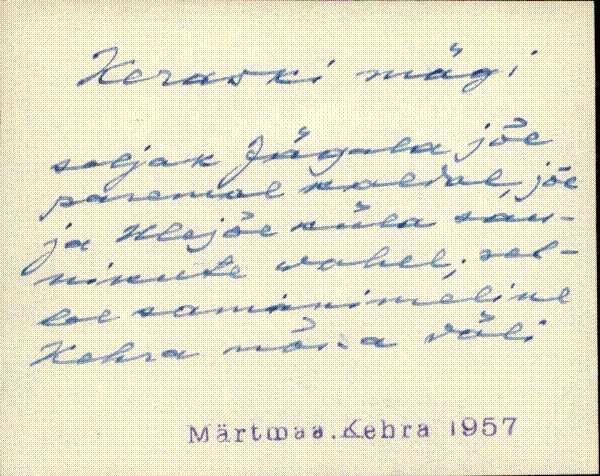 Keraski mägi
seljak Jägala jõe
paremal kaldal, jõe
ja Ülejõe küla sau-
nikute vahel; sel-
lel samanimeline
Kehra mõisa väli
Märtmaa. Kehra 1957